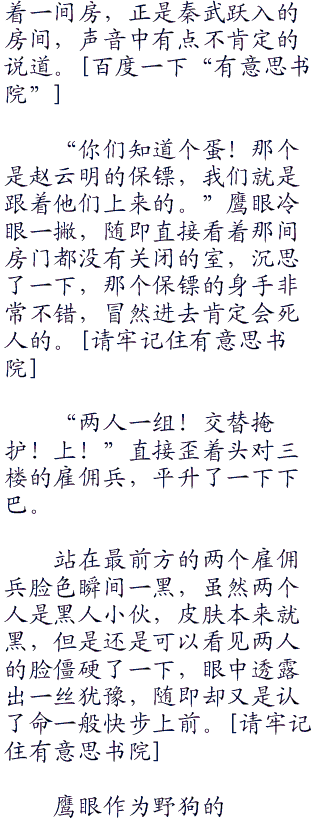 着一间房，正是秦武跃入的
房间，声音中有点不肯定的
说道。[百度一下“有意思书
院”]
“你们知道个蛋！那个
是赵云明的保镖，我们就是
跟着他们上来的。”鹰眼冷
眼一撇，随即直接看着那间
房门都没有关闭的室，沉思
了一下，那个保镖的身手非
常不错，冒然进去肯定会死
人的。[请牢记住有意思书
院]
“两人一组！交替掩
护！上！”直接歪着头对三
楼的雇佣兵，平升了一下下
巴。
站在最前方的两个雇佣
兵脸色瞬间一黑，虽然两个
人是黑人小伙，皮肤本来就
黑，但是还是可以看见两人
的脸僵硬了一下，眼中透露
出一丝犹豫，随即却又是认
了命一般快步上前。[请牢记
住有意思书院]
鹰眼作为野狗的